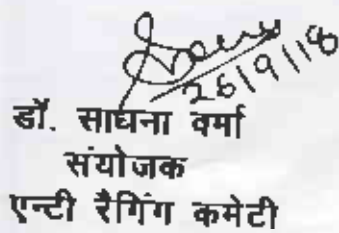 26/9/18
डॉ. साधना वर्मा
संयोजक
एन्टी रैगिंग कमेटी